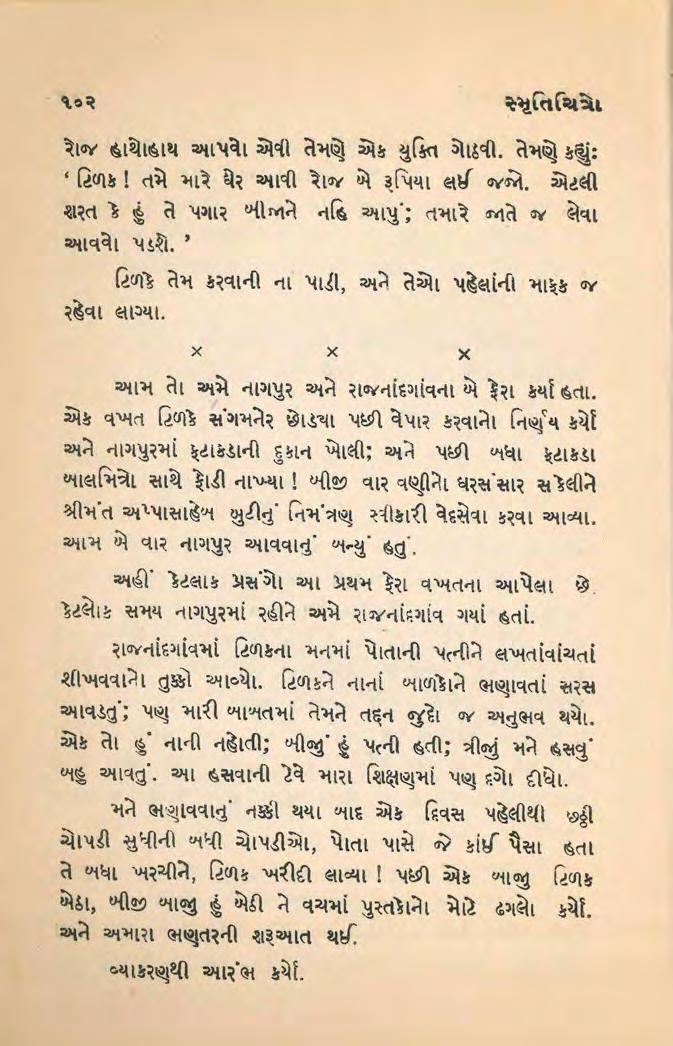 ૧૦૨ સ્મૃતિચિત્રો
રોજ હાથોહાથ આપવો એવી તેમણે એક યુક્તિ ગોઠવી. તેમણે કહ્યું:
‘ ટિળક ! તમે મારે ઘેર આવી રોજ બે રૂપિયા લઈ જજો. એટલી
શરત કે હું તે પગાર બીજાને નહિ આપું; તમારે જાતે જ લેવા
આવવો પડશે. ’
ટિળકે તેમ કરવાની ના પાડી, અને તેઓ પહેલાંની માફક જ
રહેવા લાગ્યા.
× × ×
આમ તો અમે નાગપુર અને રાજનાંદગાંવના બે ફેરા કર્યા હતા.
એક વખત ટિળકે સંગમનેર છોડ્યા પછી વેપાર કરવાનો નિર્ણય કર્યો
અને નાગપુરમાં ફટાકડાની દુકાન ખોલી; અને પછી બધા ફટાકડા
બાલમિત્રો સાથે ફોડી નાખ્યા ! બીજી વાર વણીનો ઘરસંસાર સંકેલીને
શ્રીમંત અપ્પાસાહેબ બુટીનું નિમંત્રણ સ્વીકારી વેદસેવા કરવા આવ્યા.
આમ બે વાર નાગપુર આવવાનું બન્યું હતું.
અહીં કેટલાક પ્રસંગો આ પ્રથમ ફેરા વખતના આપેલા છે.
કેટલોક સમય નાગપુરમાં રહીને અમે રાજનાંદગાંવ ગયાં હતાં.
રાજનાંદગાંવમાં ટિળકના મનમાં પોતાની પત્નીને લખતાંવાંચતાં
શીખવવાનો તુક્કો આવ્યો. ટિળકને નાનાં બાળકોને ભણાવતાં સરસ
આવડતું; પણ મારી બાબતમાં તેમને તદ્દન જુદો જ અનુભવ થયો.
એક તો હું નાની નહોતી; બીજું હું પત્ની હતી; ત્રીજું મને હસવું
બહુ આવતું. આ હસવાની ટેવે મારા શિક્ષણમાં પણ દગો દીધો.
મને ભણાવવાનું નક્કી થયા બાદ એક દિવસ પહેલીથી છઠ્ઠી
ચોપડી સુધીની બધી ચોપડીઓ, પોતા પાસે જે કાંઈ પૈસા હતા
તે બધા ખરચીને, ટિળક ખરીદી લાવ્યા ! પછી એક બાજુ ટિળક
બેઠા, બીજી બાજુ હું બેઠી ને વચમાં પુસ્તકોનો મોટે ઢગલો કર્યો.
અને અમારા ભણતરની શરૂઆત થઈ.
વ્યાકરણથી આરંભ કર્યો.